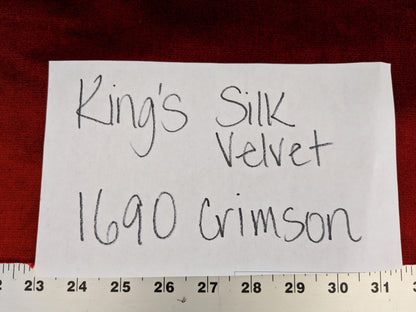 King's Silk
Velvet
1690 Crimson
2 23 24 25 26 27 28 29 30 31 3